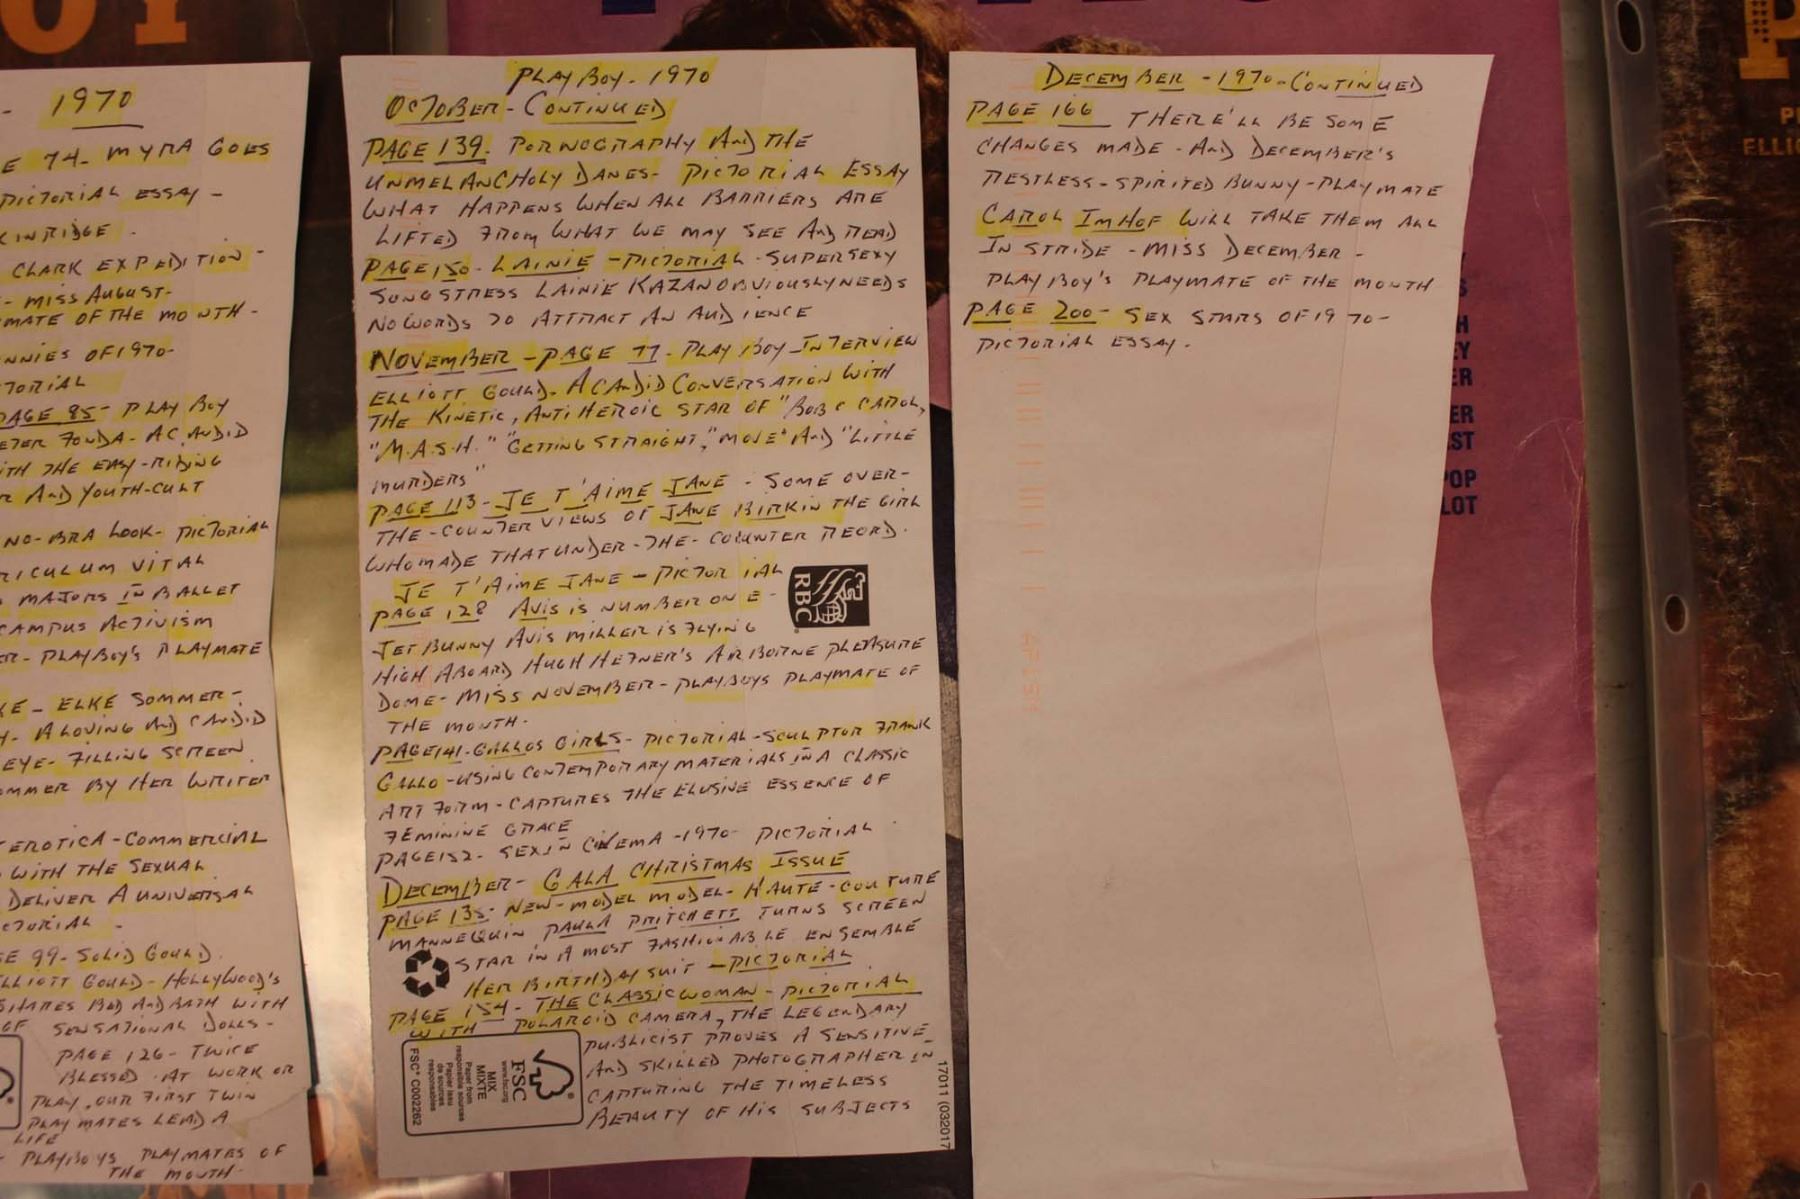 1970
E 74- MYRA GOES
PICTORIAL ESSAY -
CKINRIDGE.
CLARK EXPEDITION-
- MISS AUGUST-
MATE OF THE MONTH-
NNIES OF 1970-
TORIAL
PAGE 85- PLAYBOY
ETER FONDA- A CANDID
ITH THE EASY-RIDING
R AND YOUTH-CULT
NO-BRA LOOK- PICTORIAL
RICULUM VITAL
MAJORS IN BALLET
CAMPUS ACTIVISM
ER- PLAYBOY'S PLAYMATE
KE- ELKE SOMMER-
Y- A LOVING AND CANDID
EYE-FILLING SCREEN
OMMER BY HER WRITER
EROTICA-COMMERCIAL
WITH THE SEXUAL
DELIVER A UNIVERSAL
CTORIAL-
GE 99- SOLID GOULD.
ELLIOTT GOULD- HOLLYWOOD'S
SHARES BED AND BATH WITH
OF SENSATIONAL DOLLS-
PAGE 126- TWICE
BLESSED. AT WORK OR
PLAY, OUR FIRST TWIN
PLAYMATES LEAD A
LIFE
PLAYBOYS PLAYMATES OF
THE MONTH-
PLAYBOY- 1970
OCTOBER- CONTINUED
PAGE 139. PORNOGRAPHY AND THE
UNMELANCHOLY DANES- PICTORIAL ESSAY
WHAT HAPPENS WHEN ALL BARRIERS ARE
LIFTED FROM WHAT WE MAY SEE AND READ
PAGE 150- LAINIE -PICTORIAL-SUPERSEXY
SONGSTRESS LAINIE KAZAN OBVIOUSLY NEEDS
NO WORDS TO ATTRACT AN AUDIENCE
NOVEMBER -PAGE 77- PLAYBOY INTERVIEW
ELLIOTT GOULD- A CANDID CONVERSATION WITH
THE KINETIC, ANTIHEROIC STAR OF "BOB C CAROL,
"M.A.S.H." "GETTING STRAIGHT," "MOVE" AND "LITTLE
MURDERS"
PAGE 113- JE T'AIME JANE - SOME OVER-
THE-COUNTER VIEWS OF JANE BIRKIN THE GIRL
WHO MADE THAT UNDER-THE-COUNTER RECORD.
JE T'AIME JANE - PICTORIAL
PAGE 128 AVIS IS NUMBER ONE-
JET BUNNY AVIS MILLER IS FLYING
HIGH ABOARD HUGH HEFNER'S AIRBORNE PLEASURE
DOME- MISS NOVEMBER- PLAYBOYS PLAYMATE OF
THE MONTH-
PAGE 141-GALLOS GIRLS- PICTORIAL-SCULPTOR FRANK
GALLO-USING CONTEMPORARY MATERIALS IN A CLASSIC
ART FORM-CAPTURES THE ELUSIVE ESSENCE OF
FEMININE GRACE
PAGE 152- SEX IN CINEMA -1970- PICTORIAL
DECEMBER- GALA CHRISTMAS ISSUE
PAGE 135- NEW-MODEL MODEL- HAUTE-COUTURE
MANNEQUIN PAULA PRITCHETT TURNS SCREEN
STAR IN A MOST FASHIONABLE ENSEMBLE
HER BIRTHDAY SUIT -PICTORIAL
PAGE 154- THE CLASSIC WOMAN- PICTORIAL
WITH POLAROID CAMERA, THE LEGENDARY
PUBLICIST PROVES A SENSITIVE
AND SKILLED PHOTOGRAPHER IN
CAPTURING THE TIMELESS
BEAUTY OF HIS SUBJECTS
RBC
FSC
www.fsc.org
MIX
MIXTE
Paper from
responsible sources
Papier issu
de sources
responsables
FSC® C002262
17011 (032017
DECEMBER -1970-CONTINUED
PAGE 166 THERE'LL BE SOME
CHANGES MADE-AND DECEMBER'S
RESTLESS-SPIRITED BUNNY-PLAYMATE
CAROL IMHOF WILL TAKE THEM ALL
IN STRIDE -MISS DECEMBER-
PLAYBOY'S PLAYMATE OF THE MONTH
PAGE 200- SEX STARS OF 1970-
PICTORIAL ESSAY.
H
EY
ER
ER
ST
POP
LOT
P
ELLIO